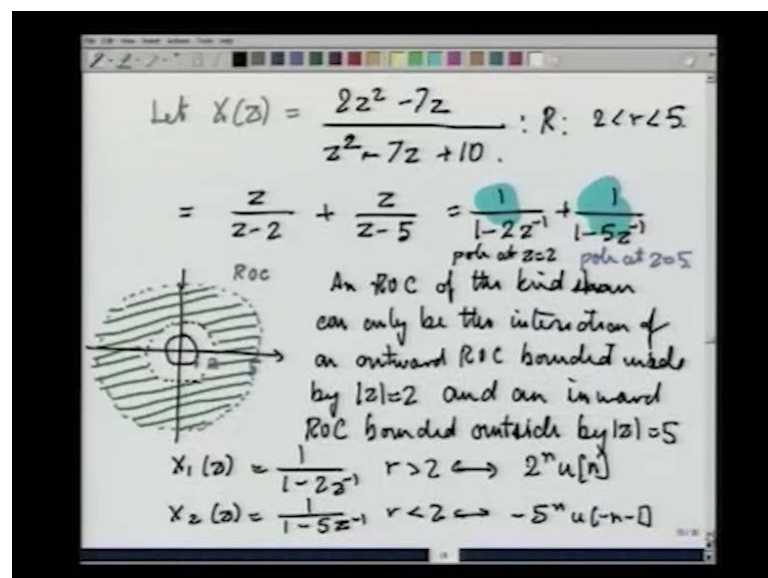 Let X(z) = 2z² -7z / z² - 7z +10 . : R: 2<r<5.
= z / z-2 + z / z-5 = 1 / 1-2z⁻¹ + 1 / 1-5z⁻¹
pole at z=2 pole at z=5
ROC
2 5
An ROC of the kind shown
can only be the intersection of
an outward ROC bounded inside
by |z|=2 and an inward
ROC bounded outside by |z|=5
X₁(z) = 1 / 1-2z⁻¹ r>2 ↔ 2ⁿ u[n]
X₂(z) = 1 / 1-5z⁻¹ r<2 ↔ -5ⁿ u[-n-1]